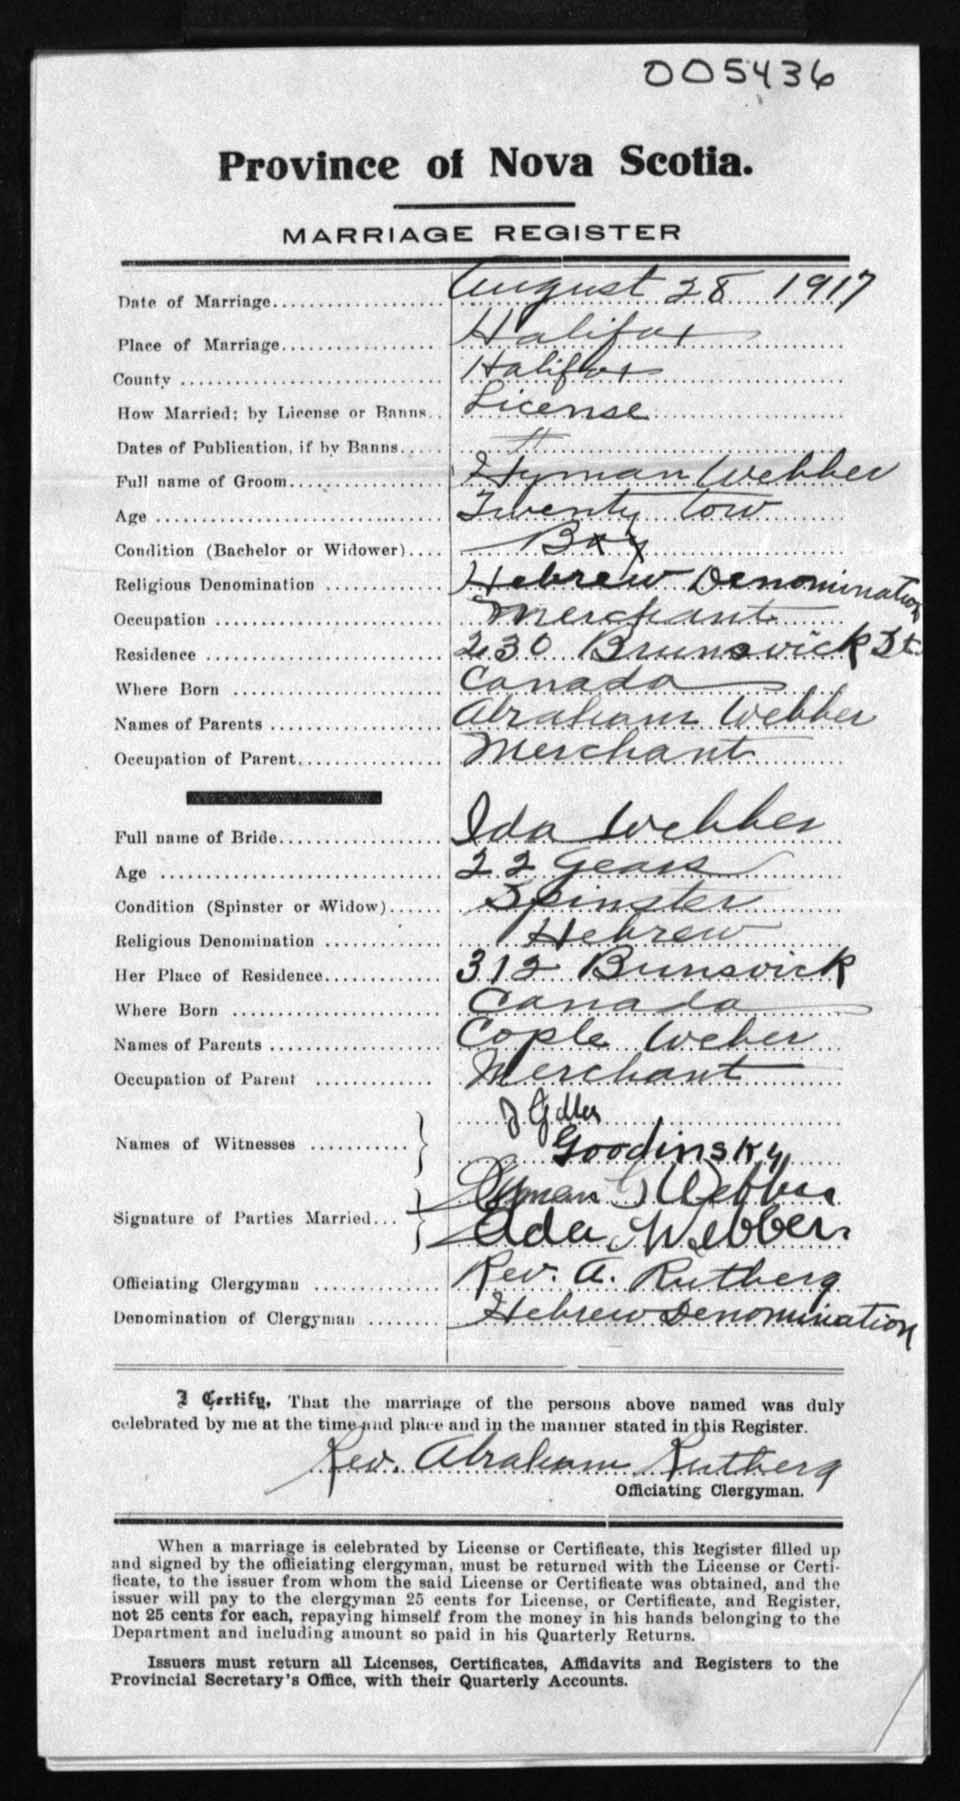 005436
Province of Nova Scotia.
MARRIAGE REGISTER
Date of Marriage August 28 1917
Place of Marriage Halifax
County Halifax
How Married; by License or Banns License
Dates of Publication, if by Banns
Full name of Groom Hyman Webber
Age Twenty tow
Condition (Bachelor or Widower) Boy
Religious Denomination Hebrew Denomination
Occupation Merchant
Residence 230 Brunswick St.
Where Born Canada
Names of Parents Abraham Webber
Occupation of Parent Merchant
Full name of Bride Ida Webber
Age 22 Years
Condition (Spinster or Widow) Spinster
Religious Denomination Hebrew
Her Place of Residence 312 Bunswick
Where Born Canada
Names of Parents Cople Weber
Occupation of Parent Merchant
J
Names of Witnesses Goodinsky
Hyman G Webber
Signature of Parties Married Ada Webber.
Officiating Clergyman Rev. A. Rutberg
Denomination of Clergyman Hebrew Denomination
I Certify, That the marriage of the persons above named was duly
celebrated by me at the time and place and in the manner stated in this Register.
Rev. Abraham Rutberg
Officiating Clergyman.
When a marriage is celebrated by License or Certificate, this Register filled up
and signed by the officiating clergyman, must be returned with the License or Certi-
ficate, to the issuer from whom the said License or Certificate was obtained, and the
issuer will pay to the clergyman 25 cents for License, or Certificate, and Register,
not 25 cents for each, repaying himself from the money in his hands belonging to the
Department and including amount so paid in his Quarterly Returns.
Issuers must return all Licenses, Certificates, Affidavits and Registers to the
Provincial Secretary's Office, with their Quarterly Accounts.